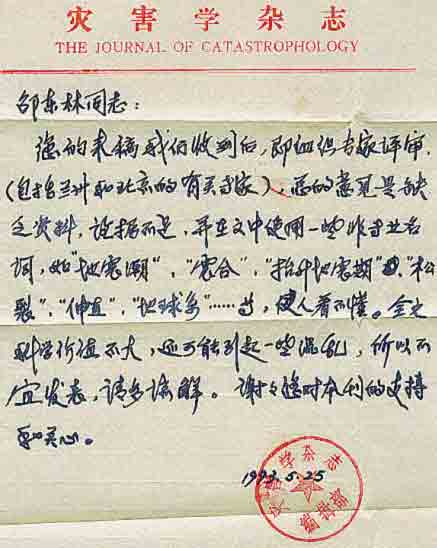 灾害学杂志
THE JOURNAL OF CATASTROPHOLOGY
邵东林同志：
您的来稿我们收到后，即组织专家评审，
（包括兰州和北京的有关专家），总的意见是缺
乏资料，证据不足，并在文中使用一些非专业名
词，如“地震潮”，“震合”，“抬升地震期”，“松
裂”，“伸直”，“地球多”……等，使人看不懂。全文
科学价值不大，还可能引起一些混乱，所以不
宜发表，请多谅解。谢谢您对本刊的支持
和关心。
1993.5.25
灾害学杂志
编辑部